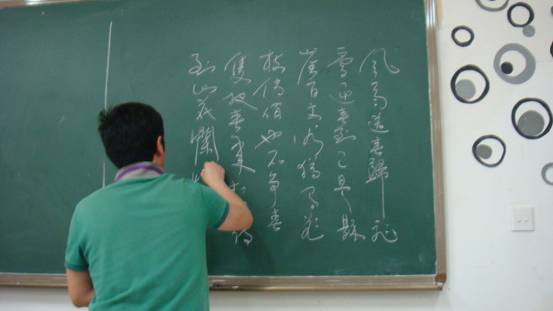 风雨送春歸飛
雪迎春到已是懸
崖百丈冰猶有花
枝俏俏也不争春
隻把春来报待
到山花爛